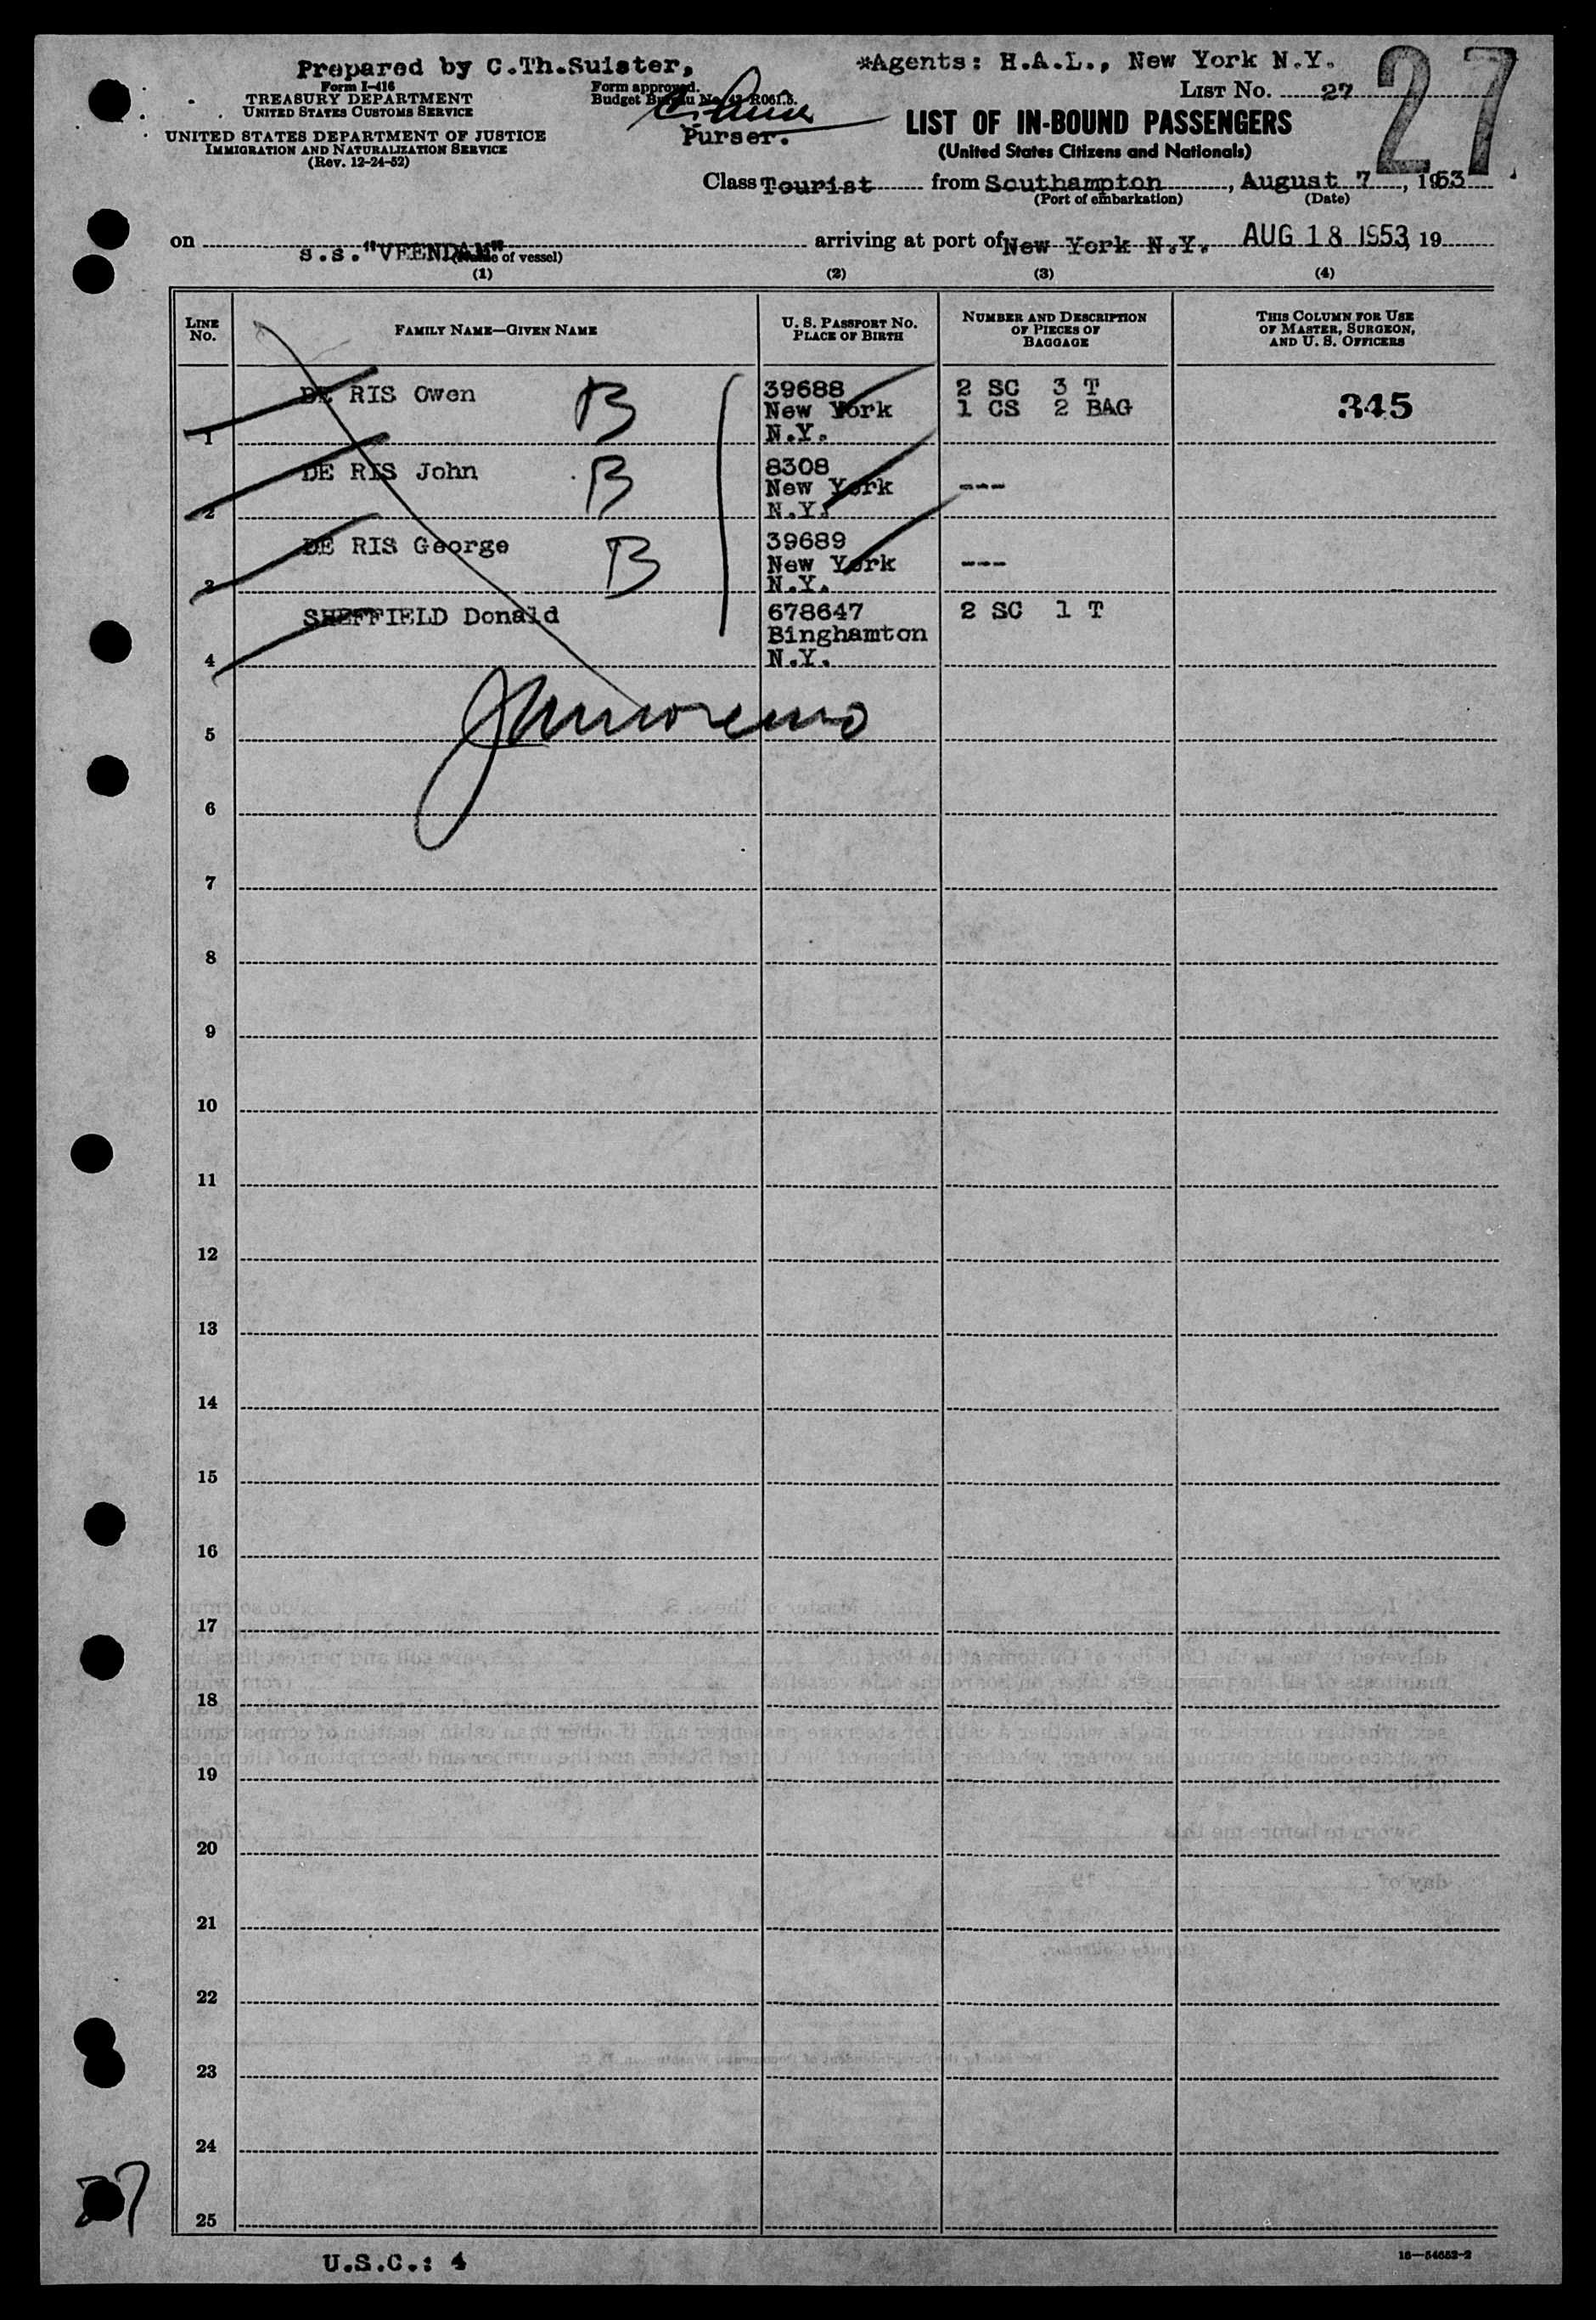 Prepared by C.Th.Suister,
*Agents: H.A.L., New York N.Y.
27
Form I-416
TREASURY DEPARTMENT
UNITED STATES CUSTOMS SERVICE
UNITED STATES DEPARTMENT OF JUSTICE
IMMIGRATION AND NATURALIZATION SERVICE
(Rev. 12-24-52)
Form approved.
Budget Bureau No. 43-R061.5.
Purser.
LIST NO. 27
LIST OF IN-BOUND PASSENGERS
(United States Citizens and Nationals)
Class Tourist from Southampton, August 7, 1953
(Port of embarkation) (Date)
on s.s."VEENDAM" arriving at port of New York N.Y. AUG 18 1953, 19
(Name of vessel)
(1) (2) (3) (4)
LINE NO.
FAMILY NAME—GIVEN NAME
U. S. PASSPORT NO.
PLACE OF BIRTH
NUMBER AND DESCRIPTION
OF PIECES OF
BAGGAGE
THIS COLUMN FOR USE
OF MASTER, SURGEON,
AND U. S. OFFICERS
1 DE RIS Owen B 39688 2 SC 3 T 345
New York 1 CS 2 BAG
N.Y.
2 DE RIS John B 8308
New York ---
N.Y.
3 DE RIS George B 39689
New York ---
N.Y.
4 SHEFFIELD Donald 678647 2 SC 1 T
Binghamton
N.Y.
5
6
7
8
9
10
11
12
13
14
15
16
17
18
19
20
21
22
23
24
25
27
U.S.C.: 4
16—54652-2